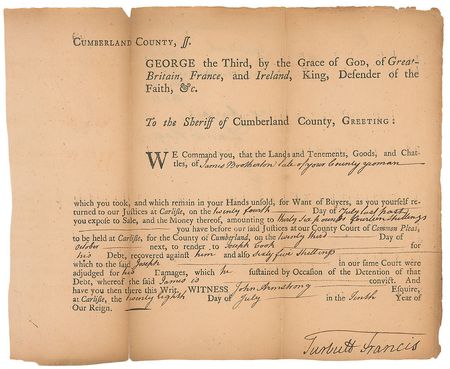 CUMBERLAND COUNTY, ſſ.
GEORGE the Third, by the Grace of God, of Great-
Britain, France, and Ireland, King, Defender of the
Faith, &c.
To the Sheriff of Cumberland County, GREETING:
WE Command you, that the Lands and Tenements, Goods, and Chat-
tles, of James Brotherton late of your County yeoman
which you took, and which remain in your Hands unsold, for Want of Buyers, as yourself re-
turned to our Justices at Carlisle, on the twenty fourth Day of July last past
you expose to Sale, and the Money thereof, amounting to thirty six pounds fourteen shillings
you have before our said Justices at our County Court of Common Pleas,
to be held at Carlisle, for the County of Cumberland, on the twenty third Day of
October next, to render to Joseph Cook for
his Debt, recovered against him and also sixty five shillings
which to the said Joseph in our same Court were
adjudged for his Damages, which he sustained by Occasion of the Detention of that
Debt, whereof the said James is convict. And
have you then there this Writ. WITNESS John Armstrong Esquire,
at Carlisle, the twenty eighth Day of July in the Tenth Year of
Our Reign.
Turbutt Francis